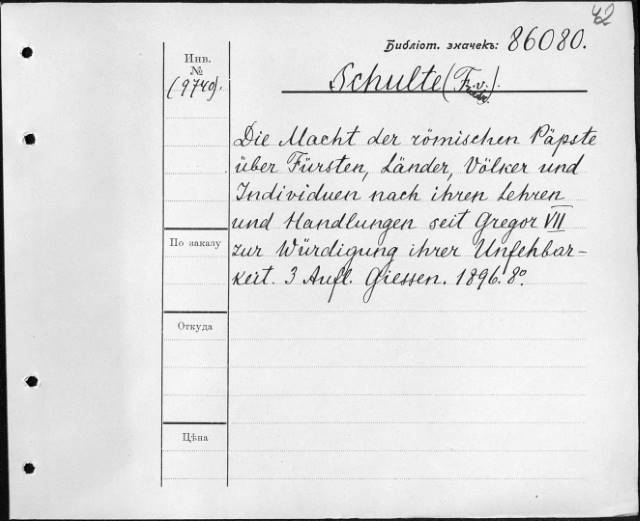 42
Библіот. значекъ: 86080.
Инв.
№
(9740).
Schulte (Fr. v.).
Die Macht der römischen Päpste
über Fürsten, Länder, Völker und
Individuen nach ihren Lehren
und Handlungen seit Gregor VII
zur Würdigung ihrer Unfehbar-
keit. 3 Aufl. Giessen. 1896. 8º.
По заказу
Откуда
Цѣна